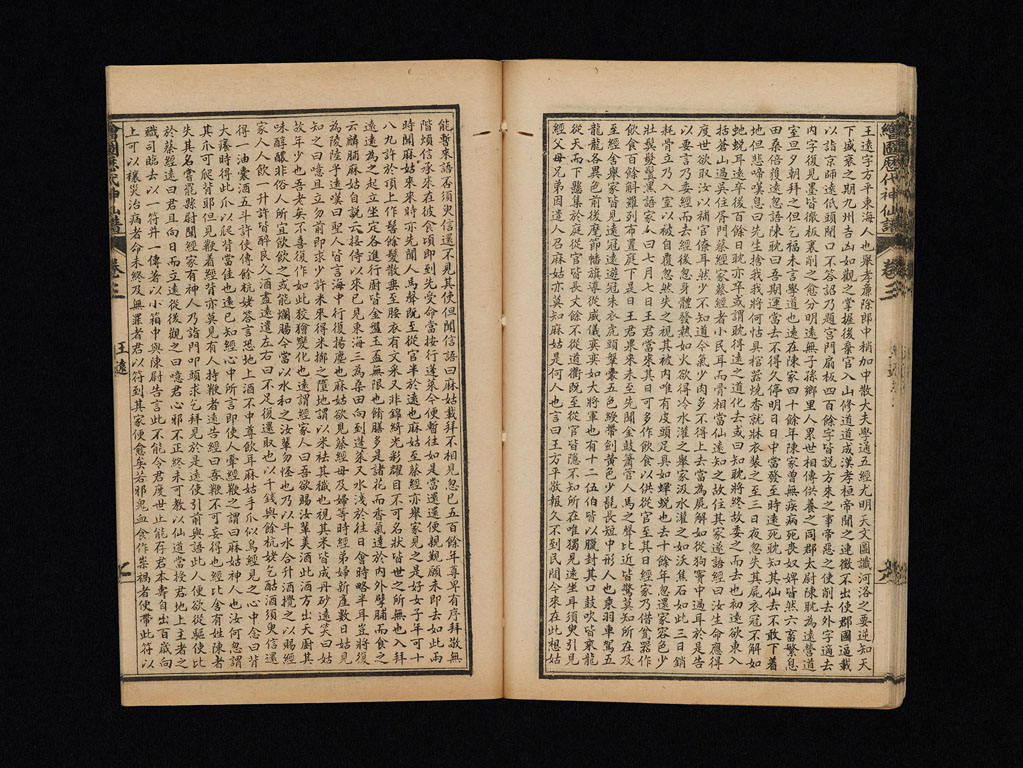 王遠字方平東海人也舉孝廉除郎中稍加中散大夫學通五經尤明天文圖讖河洛之要逆知天
下盛衰之期九州吉凶如觀之掌握後棄官入山修道道成漢孝桓帝聞之連徵不出使郡國逼載
以詣京師遠低頭閉口不答詔乃題宮門扇板四百餘字皆說方來之事帝惡之使削去外字適去
內字復見墨皆徹板裏削之愈分明遠無子孫鄉里人累世相傳供養之同郡太尉陳耽為遠營道
室旦夕朝拜之但乞福未言學道也遠在陳家四十餘年陳家曾無疾病死喪奴婢皆然六畜繁息
田桑倍穫遠忽語陳耽曰吾期運當去不得久停明日日中當發至時遠死耽知其仙去不敢下著
地但悲啼嘆息曰先生捨我我將何怙具棺器燒香就牀衣裝之至三日夜忽失其屍衣冠不解如
蛇蛻耳遠卒後百餘日耽亦卒或謂耽得遠之道化去或曰知耽將終故委之而去也初遠欲東入
括蒼山過吳住胥門蔡經家蔡經者小民耳而骨相當仙遠知之故住其家遂語經曰汝生命應得
度世欲取汝以補官僚耳然少不知道今氣少肉多不得上去當為屍解如從狗竇中過耳於是告
以要言乃委經而去經後忽身體發熱如火欲得冷水灌之舉家汲水灌之如沃焦石如此三日銷
耗骨立乃入室以被自覆忽然失之視其被內唯有皮頭足具如蟬蛻也去十餘年忽還家容色少
壯鬢髮鬒黑語家人曰七月七日王君當來其日可多作飲食以供從官至其日經家乃借甕器作
飲食百餘斛羅列布置庭下是日王君果來未至先聞金鼓簫管人馬之聲比近皆驚莫知所在及
至經舍舉家皆見遠遠冠遠遊冠朱衣虎頭鞶裳五色綬帶劍黃色少髭長短中形人也乘羽車駕五
龍龍各異色前後麾節幡旗導從威儀奕奕如大將軍也有十二伍伯皆以臘封其口鼓吹皆乘龍
從天而下懸集於庭從官皆長丈餘不從道衢既至從官皆隱不知所在唯獨見遠坐耳須臾引見
經父母兄弟因遣人召麻姑亦莫知麻姑是何人也言曰王方平敬報久不到民間今來在此想姑
能暫來語否須臾信還不見其使但聞信語曰麻姑載拜不相見忽已五百餘年尊卑有序拜敬無
階煩信承來在彼食頃即到先受命當按行蓬萊今便暫往如是當還還便親覲願未即去如此兩
時聞麻姑來來時亦先聞人馬聲既至從官半於遠也麻姑至蔡經亦舉家見之是好女子年可十
八九許於頂上作髻餘髮散垂至腰衣有文采又非錦綺光彩耀目不可名狀皆世之所無也入拜
遠遠為之起立坐定各進行廚皆金盤玉盃無限也餚膳多是諸花而香氣達於內外擘脯而食之
云麟脯麻姑自說云接侍以來已見東海三為桑田向到蓬萊又水淺於往日會時略半耳豈將復
為陵陸乎遠嘆曰聖人皆言海中行復揚塵也麻姑欲見蔡經母及婦等時經弟婦新產數日姑見
知之曰噫且立勿前即求少許米來得米擲之墮地謂以米祛其穢也視其米皆成丹砂遠笑曰姑
故年少也吾老矣不喜復作如此狡獪變化也遠謂經家人曰吾欲賜汝輩美酒此酒方出天廚其
味醇醲非俗人所宜飲飲之或能爛腸今當以水和之汝輩勿怪也乃以斗水合升酒攪之以賜經
家人人飲一升許皆醉良久酒盡遠遣左右曰不足復還取也以千錢與餘杭姥乞酤酒須臾信還
得一油囊酒五斗許使傳餘杭姥答言恐地上酒不中尊飲耳麻姑手爪似鳥經見之心中念曰背
大癢時得此爪以爬背當佳也遠已知經心中所言即使人牽經鞭之謂曰麻姑神人也汝何忽謂
其爪可爬背耶但見鞭着經背亦莫見有人持鞭者遠告經曰吾鞭不可妄得也經比舍有姓陳者
失其名嘗罷縣尉聞經家有神人乃詣門叩頭求乞拜見於是遠使引前與語此人便欲從驅使比
於蔡經遠曰君且向日而立遠從後觀之曰噫君心邪不正終未可教以仙道當授君地上主者之
職司臨去以一符并一傳著以小箱中與陳尉告言此不能令君度世止能存君本壽自出百歲向
上可以禳災治病者命未終及無罪者君以符到其家便愈矣若邪鬼血食作祟禍者使帶此符以
繪圖歷代神仙譜 卷三 王遠